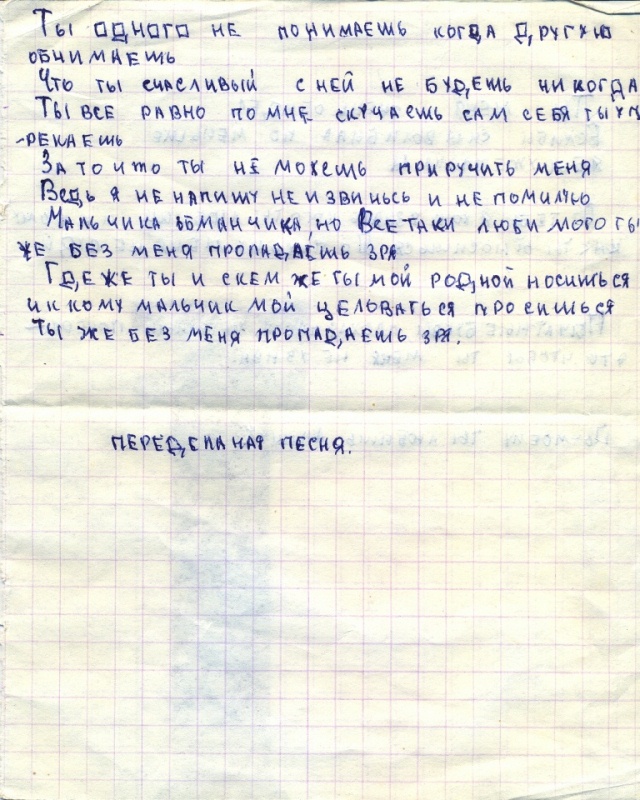 Ты одного не понимаешь когда другую
обнимаешь
Что ты счасливый с ней не будешь никогда
Ты все равно по мне скучаешь сам себя ты уп
-рекаешь
За то что ты не можешь приручить меня
Ведь я не напишу не извинюсь и не помилую
Мальчика обманчика, но все таки люби мого ты
же без меня пропадаешь зря
Где же ты и скем же ты мой родной носишься
и к кому мальчик мой целоваться просишься
ты же без меня пропадаешь зря.
переделаная песня.